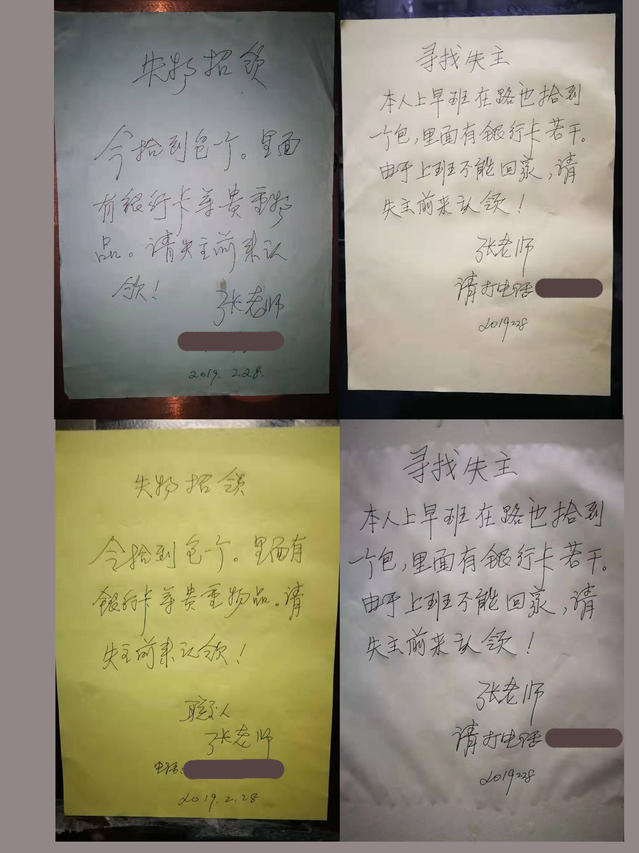 失物招领
今拾到包个。里面
有银行卡等贵重物
品。请失主前来认
领！
张老师
2019.2.28.
寻找失主
本人上早班在路也拾到
一个包，里面有银行卡若干。
由于上班不能回家，请
失主前来认领！
张老师
请打电话
2019228
失物招领
今拾到包个。里面有
银行卡等贵重物品。请
失主前来认领！
联系人
张老师
电话:
2019.2.28
寻找失主
本人上早班在路也拾到
一个包，里面有银行卡若干。
由于上班不能回家，请
失主前来认领！
张老师
请打电话
2019228